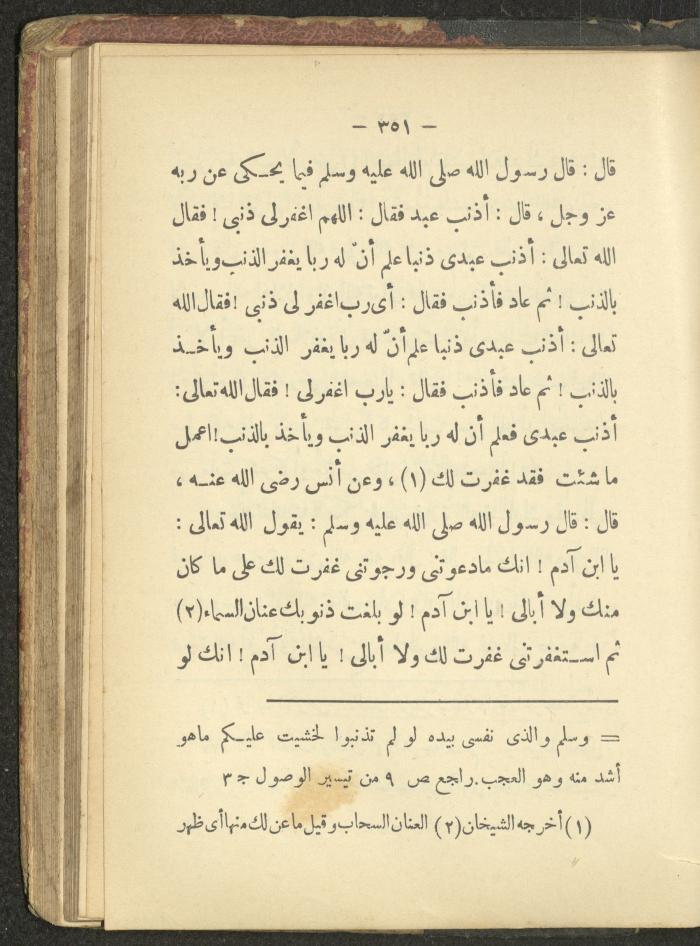 — ٣٥١ —
قال : قال رسول الله صلى الله عليه وسلم فيما يحكى عن ربه
عز وجل ، قال : أذنب عبد فقال : اللهم اغفر لى ذنبى ! فقال
الله تعالى : أذنب عبدى ذنبا علم أنّ له ربا يغفر الذنب ويأخذ
بالذنب ! ثم عاد فأذنب فقال : أى رب اغفر لى ذنبى ! فقال الله
تعالى : أذنب عبدى ذنبا علم أنّ له ربا يغفر الذنب ويأخذ
بالذنب ! ثم عاد فأذنب فقال : يارب اغفر لى ! فقال الله تعالى :
أذنب عبدى فعلم أن له ربا يغفر الذنب ويأخذ بالذنب ! اعمل
ما شئت فقد غفرت لك (١) ، وعن أنس رضى الله عنه ،
قال : قال رسول الله صلى الله عليه وسلم : يقول الله تعالى :
يا ابن آدم ! انك مادعوتنى ورجوتنى غفرت لك على ما كان
منك ولا أبالى ! يا ابن آدم ! لو بلغت ذنوبك عنان السماء (٢)
ثم استغفرتنى غفرت لك ولا أبالى ! يا ابن آدم ! انك لو
= وسلم والذى نفسى بيده لو لم تذنبوا لخشيت عليكم ماهو
أشد منه وهو العجب . راجع ص ٩ من تيسير الوصول ج ٣
(١) أخرجه الشيخان (٢) العنان السحاب وقيل ما عن لك منها أى ظهر